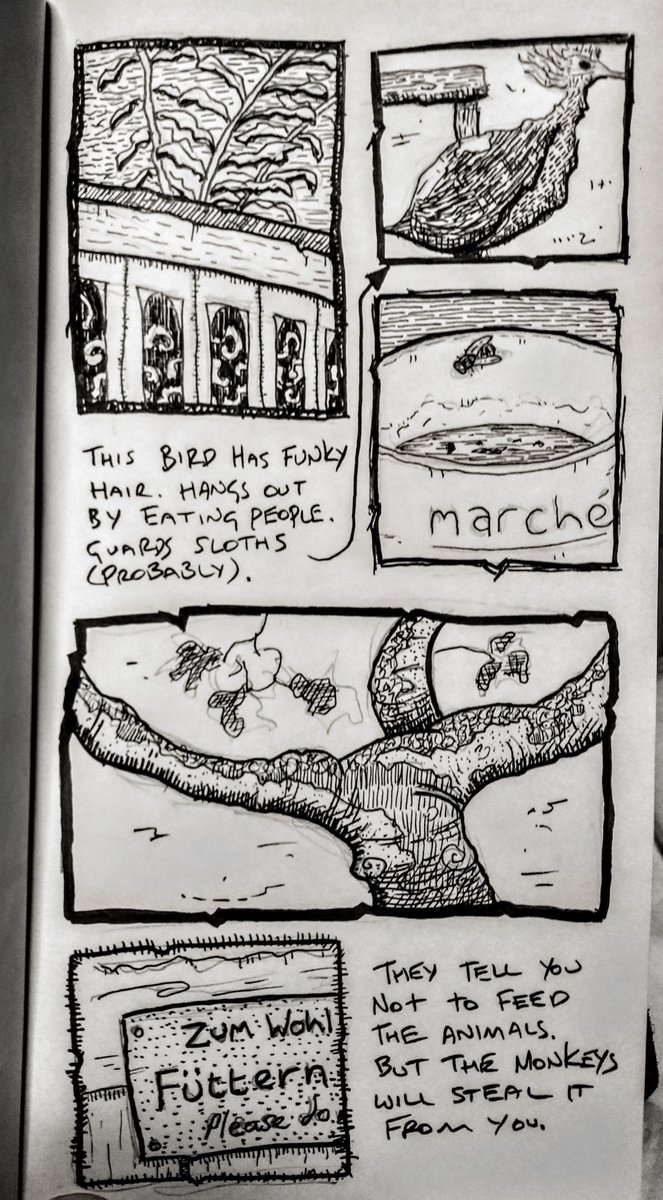 THIS BIRD HAS FUNKY
HAIR. HANGS OUT
BY EATING PEOPLE.
GUARDS SLOTHS
(PROBABLY).
marché
Zum Wohl
Füttern
please do
THEY TELL YOU
NOT TO FEED
THE ANIMALS.
BUT THE MONKEYS
WILL STEAL IT
FROM YOU.